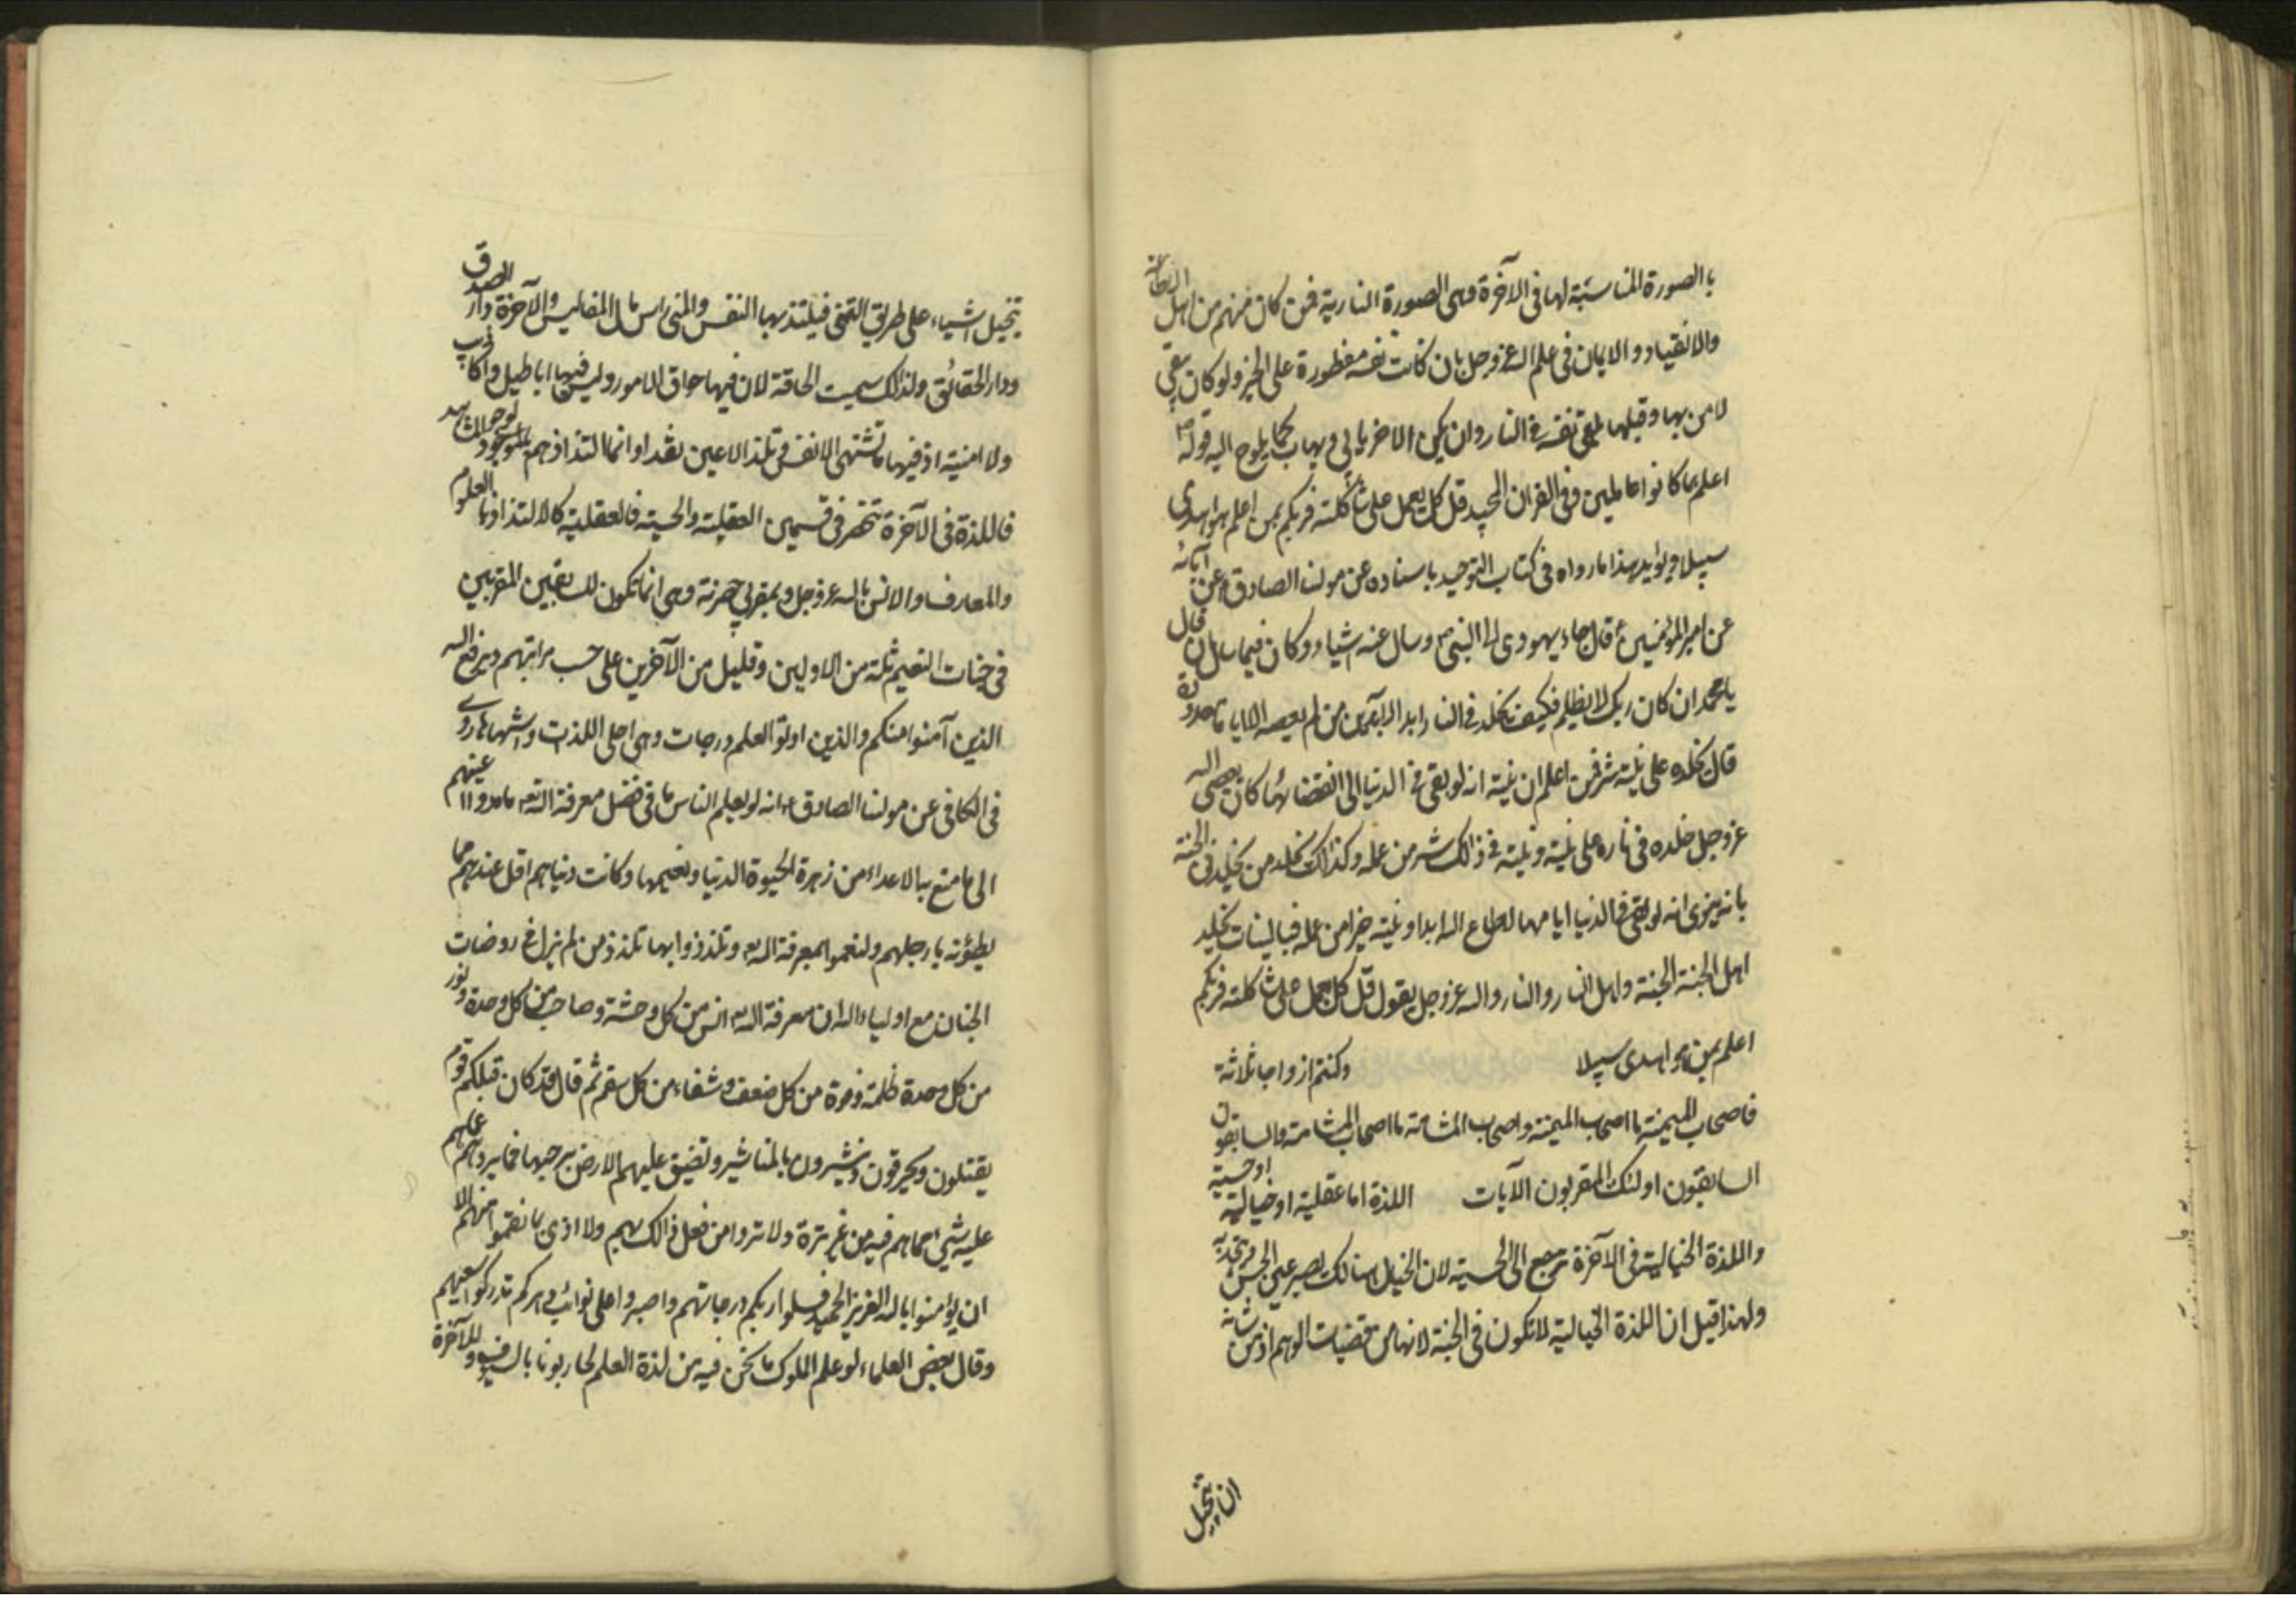 بالصورة المناسبة لها فى الآخرة وهى الصورة النارية فمن كان منهم من اهل الطاعة
والانقياد والايمان فى علم الله عزوجل بان كانت نفسه مفطورة على الخير ولو كان بقى
لامن بها وقبلها نفسه فى النار وان يكن الاخر كما يلوح اليه قوله ص
اعلم بما كانوا عاملين وفى القران المجيد قل كل يعمل على شاكلته فربكم بمن اعلم هو اهدى
سبيلا ويؤيد هذا ما رواه فى كتاب التوحيد باسناده عن مولنا الصادق ع عن آبائه
عن امير المؤمنين ع قال جاء يهودى الى النبى ص وسال عنه اشياء وكان فيما سال ان قال
يا محمد ان كان ربك لا يظلم فكيف يخلد فى النار ابد الابدين من لم يعصه الا اياما معدودة
قال يخلده على نيته فمن اعلم ان نيته انه لو بقى فى الدنيا الى انقضائها كان يعصى الله
عزوجل خلده فى ناره على نيته ونيته فى ذالك شر من عمله وكذالك يخلد من يخلد فى الجنة
بانه ينوى انه لو بقى فى الدنيا ايامها لطاع الله ابدا ونيته خيرا من عمله فبالنيات يخلد
اهل الجنة الجنة واهل النار والنار والله عزوجل يقول قل كل يعمل على شاكلته فربكم
اعلم بمن هو اهدى سبيلا وكنتم ازواجا ثلاثة
فاصحاب الميمنة ما اصحاب الميمنة واصحاب المشامة ما اصحاب المشامة والسابقون
السابقون اولئك المقربون الآيات اللذة اما عقلية او خيالية او حسية
واللذة الخيالية فى الآخرة ترجع الى الحسية لان الخيال هنالك يصير عين الحس
ولهذا قيل ان اللذة الخيالية لا تكون فى الجنة لانها من مقتضيات الوهم اذ من شانه
ان يتخيل
تتخيل اشياء على طريق التمنى فيلتذ بها النفس والمنى راس مال المفاليس والآخرة دار الصدق
ودار الحقائق ولذالك سميت الحاقة لان فيها حواق الامور وليس فيها اباطيل واكاذيب
ولا امنية اذ فيها ما تشتهى الانفس وتلذ الاعين نقدا وانما التذاذهم بالموجود
فاللذة فى الآخرة تنحصر فى قسمين العقلية والحسية فالعقلية كالالتذاذ بالعلوم
والمعارف والانس بالله عزوجل وبمقربى حضرته وهى انما تكون للسابقين المقربين
فى جنات النعيم ثلة من الاولين وقليل من الآخرين على حسب مراتبهم ويرفع الله
الذين آمنوا منكم والذين اوتوا العلم درجات وهى اجلى اللذت واشهاها روى
فى الكافى عن مولنا الصادق ع انه لو يعلم الناس ما فى فضل معرفة الله تع ما مدوا اعينهم
الى ما متع به الاعداء من زهرة الحيوة الدنيا ونعيمها وكانت دنياهم اقل عندهم مما
يطؤنه بارجلهم ولنعموا بمعرفة الله تع وتلذذوا بها تلذذ من لم يزل فى روضات
الجنان مع اولياء الله ان معرفة الله تع انس من كل وحشة وصاحب من كل وحدة ونور
من كل وحدة ظلمة وقوة من كل ضعف وشفاء من كل سقم ثم قال وقد كان قبلكم قوم
يقتلون ويحرقون وينشرون بالمناشير وتضيق عليهم الارض برحبها فما يردهم عما هم
عليه شيئ مما هم فيه من غير ترة ولا تروا من فعل ذالك بهم ولا اذى بما نقموا منهم الا
ان يؤمنوا بالله العزيز الحميد فسلوا ربكم درجاتهم واصبروا على نوائب دهركم تدركوا سعيهم
وقال بعض العلماء لو علم الملوك ما نحن فيه من لذة العلم لحاربونا بالسيوف وللآخرة